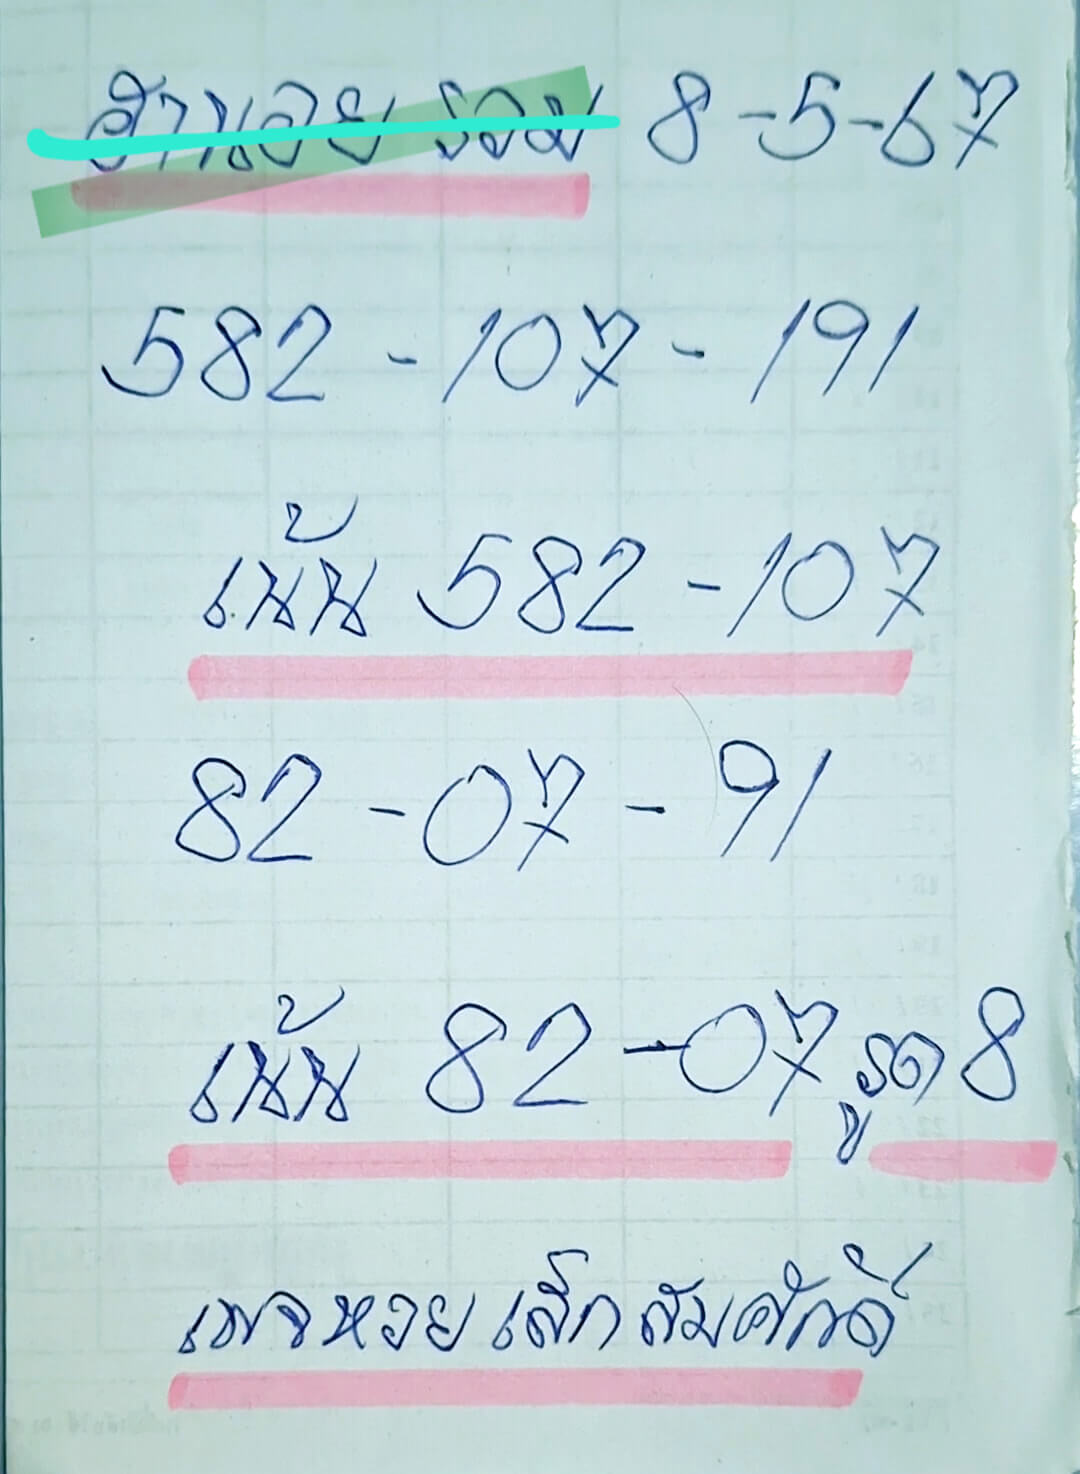 ฮานอย รวม 8-5-67
582 - 107 - 191
เน้น 582 - 107
82 - 07 - 91
เน้น 82 - 07 รูด 8
เพจหวย เล็ก สมศักดิ์